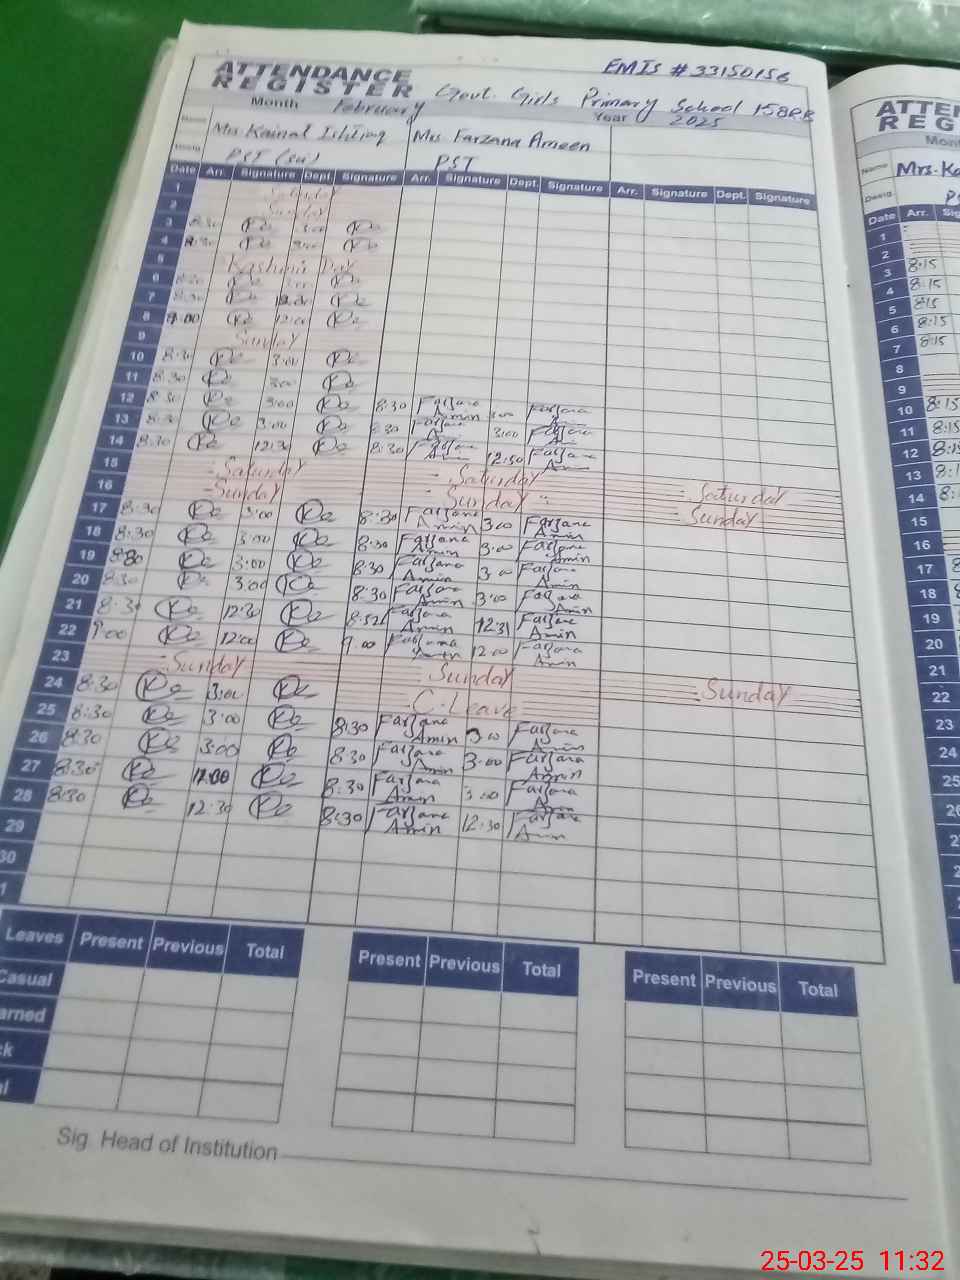 EMIS # 33150156
ATTENDANCE
REGISTER
Govt. Girls Primary School 158RB
Month February Year 2025
Name Mrs Kainal Ishtiaq Mrs Farzana Ameen
Desig. PST PST
Date Arr. Signature Dept. Signature Arr. Signature Dept. Signature Arr. Signature Dept. Signature
1 Saturday
2 Sunday
3 8:30 3:00
4 8:30 3:00
5 Kashmir Day
6 8:30
7 8:30
8 9:00 12:00
9 Sunday
10 8:30 3:00
11 8:30 3:00
12 8:30 3:00 8:30 Farzana Amin 3:00 Farzana Amin
13 8:30 3:00 8:30 Farzana Amin 3:00 Farzana Amin
14 8:30 12:30 8:30 Farzana Amin 12:30 Farzana Amin
15 Saturday Saturday Saturday
16 Sunday Sunday Sunday
17 8:30 3:00 8:30 Farzana Amin 3:00 Farzana Amin
18 8:30 3:00 8:30 Farzana Amin 3:00 Farzana Amin
19 8:30 3:00 8:30 Farzana Amin 3:00 Farzana Amin
20 8:30 3:00 8:30 Farzana Amin 3:00 Farzana Amin
21 8:30 12:30 Farzana Amin Farzana Amin
22 9:00 12:00 9:00 Farzana Amin 12:00 Farzana Amin
23 Sunday Sunday Sunday
24 8:30 3:00 C.Leave
25 8:30 3:00 8:30 Farzana Amin 3:00 Farzana Amin
26 8:30 3:00 8:30 Farzana Amin 3:00 Farzana Amin
27 8:30 8:30 Farzana Amin 3:00 Farzana Amin
28 8:30 12:30 8:30 Farzana Amin 12:30 Farzana Amin
29
30
1
Leaves Present Previous Total Present Previous Total Present Previous Total
Casual
arned
ck
al
Sig. Head of Institution
ATTE
REG
Mont
Name Mrs. Ka
Desig.
Date Arr. Sig
1
2
3 8:15
4 8:15
5 8:15
6 8:15
7 8:15
8
9
10 8:15
11 8:15
12 8:15
13 8:1
14 8:
15
16
17 8
18
19
20
21
22
23
24
25
26
2
2
25-03-25 11:32